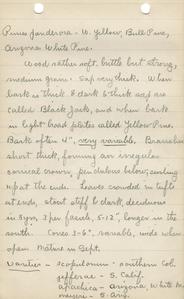 Pinus ponderosa - W. Yellow, Bull Pine,
Arizona White Pine.
Wood rather soft, brittle but strong,
medium grain. Sap very thick. When
bark is thick & dark & thick sap are
called Black Jack, and when bark
in light broad plates called Yellow Pine.
Bark often 4", very variable. Branches
short thick, forming an irregular
conical crown, pendulous below; curling
up at the ends. Leaves crowded in tufts
at ends, stout stiff & dark, deciduous
in 3 yrs, 3 per fascicle, 5-12", longer in the
south. Cones 3-6", variable, wide when
open. Mature in Sept.
Varieties - scopulorum - southern Col.
jefferae - S. Calif.
apachaica - Arizona, White M
mayriana - S. Ariz.